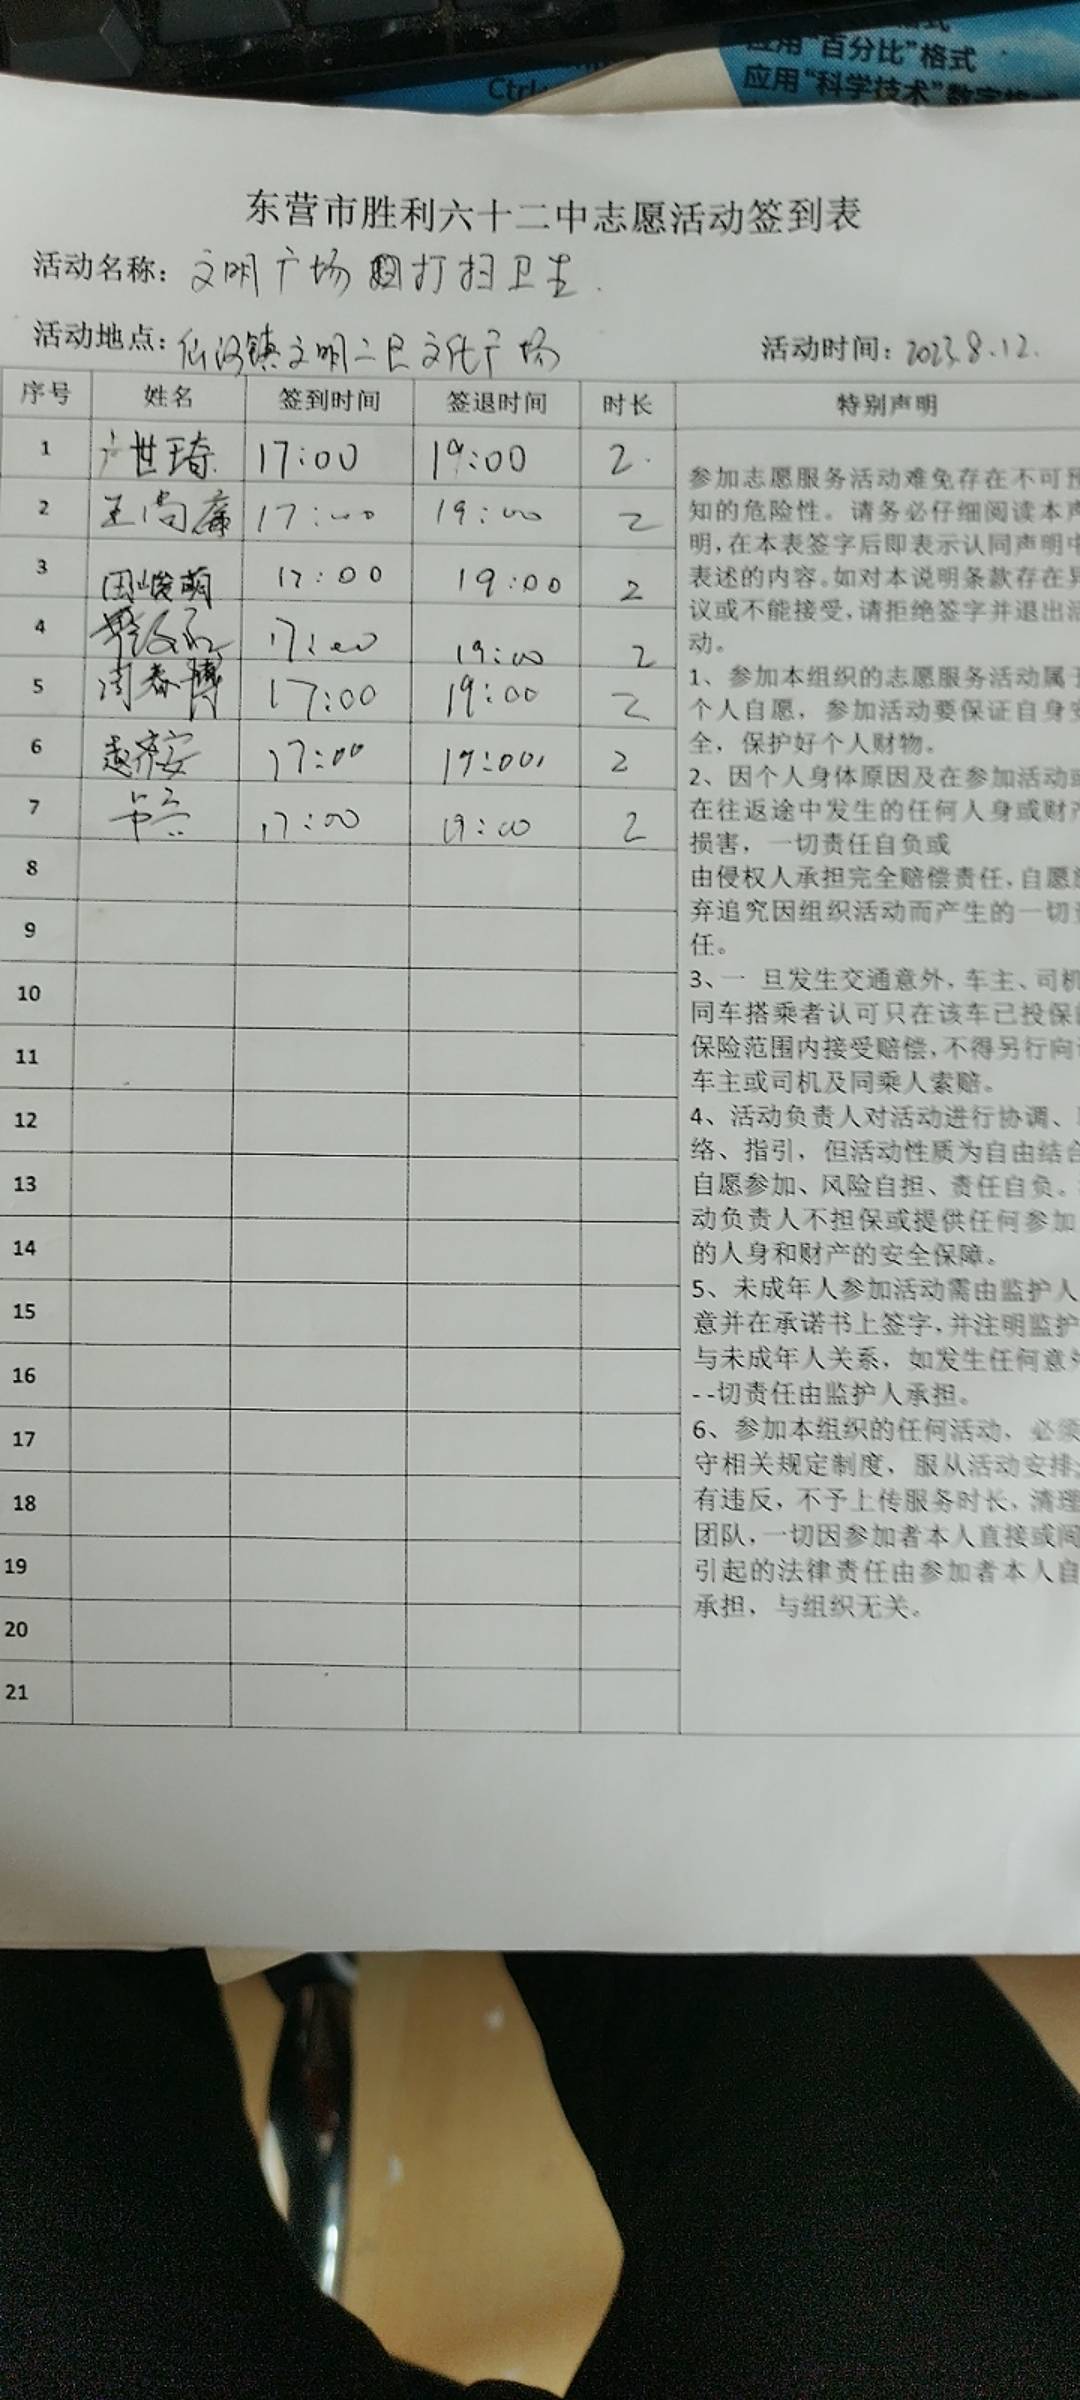 应用“百分比”格式
应用“科学技术”数字格式
Ctrl
东营市胜利六十二中志愿活动签到表
活动名称：文明广场 打扫卫生.
活动地点：仙河镇文明二区文化广场
活动时间：2023.8.12.
序号 姓名 签到时间 签退时间 时长 特别声明
1 世琦 17:00 19:00 2.
2 王尚 17:00 19:00 2
3 田峻萌 17:00 19:00 2
4 17:00 19:00 2
5 周春博 17:00 19:00 2
6 赵安 17:00 19:00 2
7 17:00 19:00 2
8
9
10
11
12
13
14
15
16
17
18
19
20
21
参加志愿服务活动难免存在不可预
知的危险性。请务必仔细阅读本声
明，在本表签字后即表示认同声明中
表述的内容。如对本说明条款存在异
议或不能接受，请拒绝签字并退出活
动。
1、参加本组织的志愿服务活动属于
个人自愿，参加活动要保证自身安
全，保护好个人财物。
2、因个人身体原因及在参加活动或
在往返途中发生的任何人身或财产
损害，一切责任自负或
由侵权人承担完全赔偿责任，自愿放
弃追究因组织活动而产生的一切责
任。
3、一 旦发生交通意外，车主、司机
同车搭乘者认可只在该车已投保的
保险范围内接受赔偿，不得另行向
车主或司机及同乘人索赔。
4、活动负责人对活动进行协调、
络、指引，但活动性质为自由结合
自愿参加、风险自担、责任自负。
动负责人不担保或提供任何参加
的人身和财产的安全保障。
5、未成年人参加活动需由监护人
意并在承诺书上签字，并注明监护
与未成年人关系，如发生任何意外
--切责任由监护人承担。
6、参加本组织的任何活动、必须
守相关规定制度，服从活动安排，
有违反，不予上传服务时长，清理
团队，一切因参加者本人直接或间
引起的法律责任由参加者本人自
承担，与组织无关。